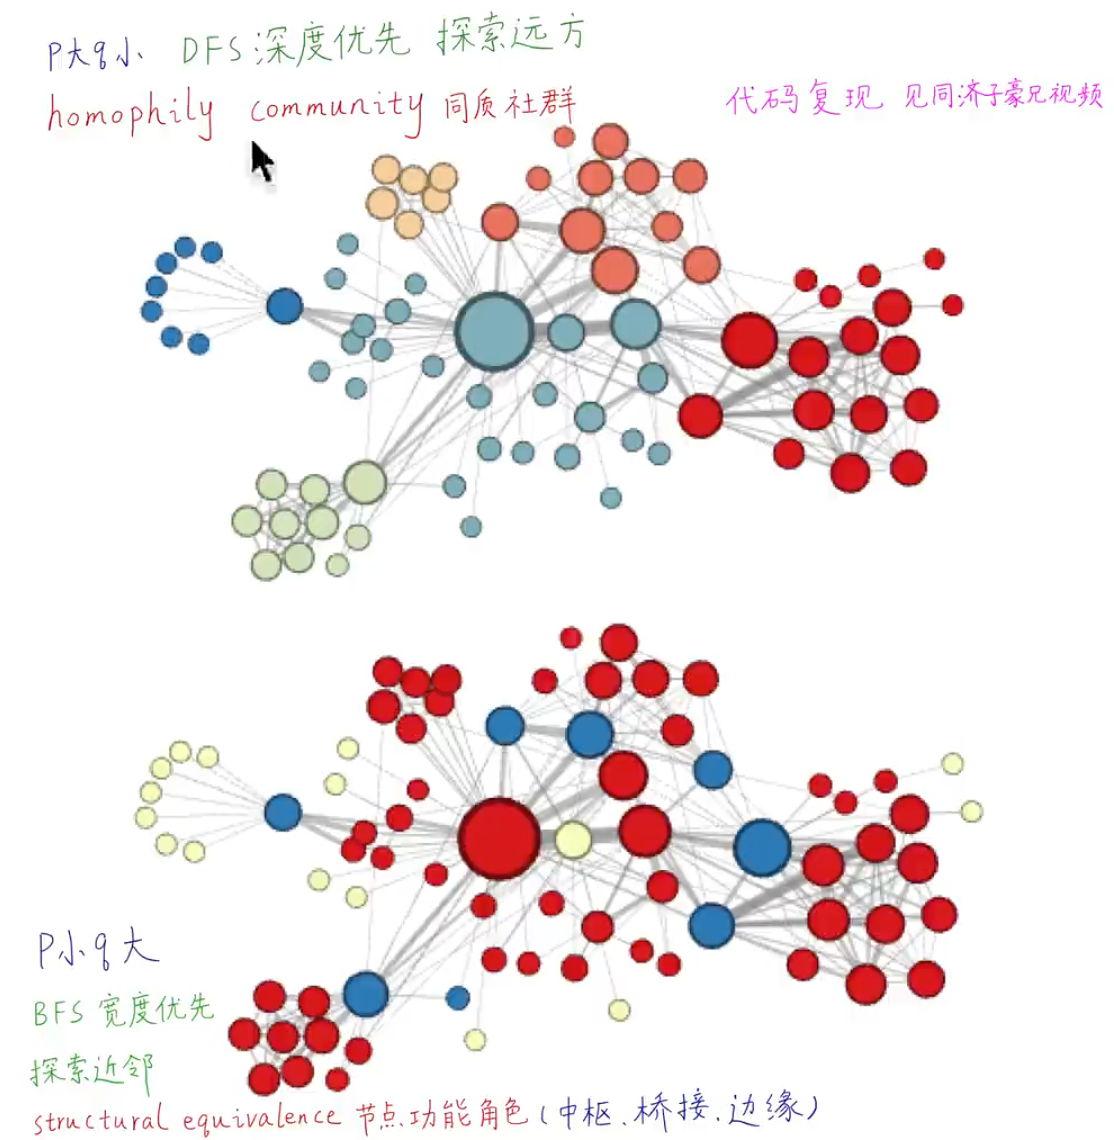 P大q小 DFS 深度优先 探索远方
homophily community 同质社群
代码复现 见同济子豪兄视频
P小q大
BFS 宽度优先
探索近邻
structural equivalence 节点功能角色(中枢、桥接、边缘)